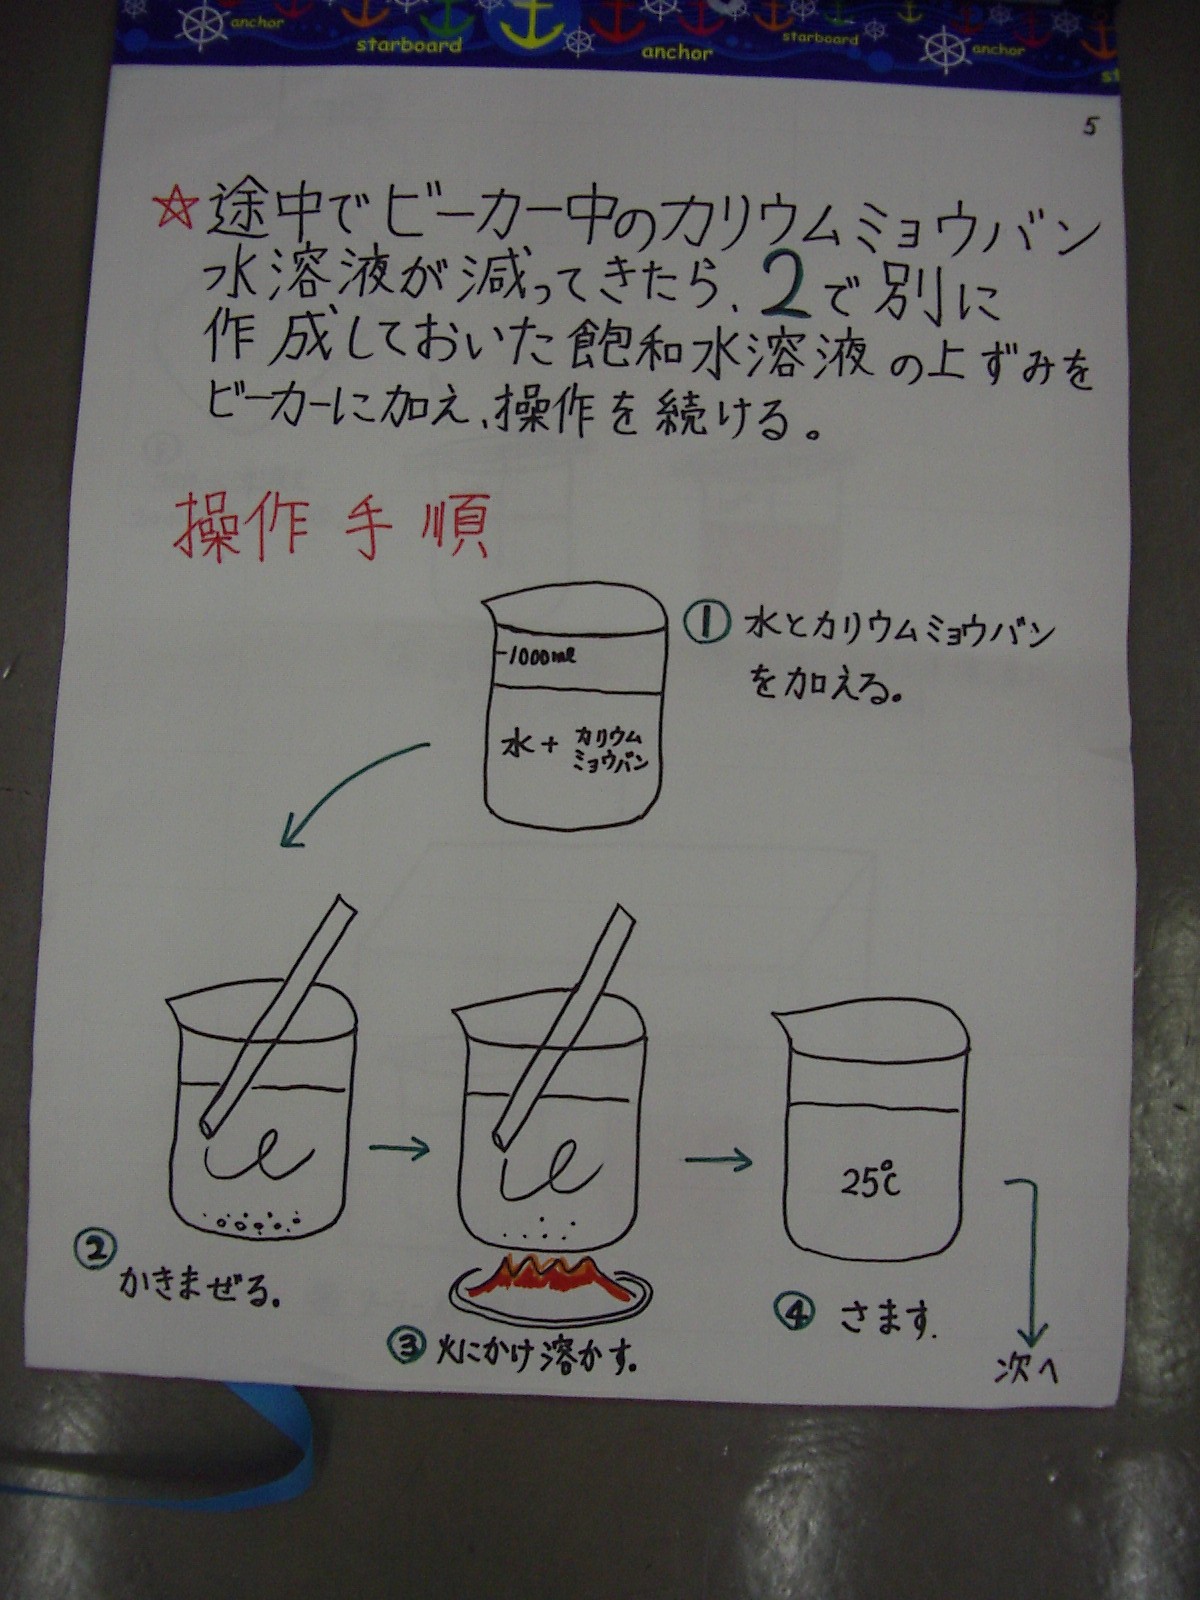 anchor
starboard
anchor
starboard
anchor
st
5
☆途中でビーカー中のカリウムミョウバン
水溶液が減ってきたら、2で別に
作成しておいた飽和水溶液の上ずみを
ビーカーに加え、操作を続ける。
操作手順
1000ml
水+カリウム
ミョウバン
① 水とカリウムミョウバン
を加える。
25℃
② かきまぜる。
③ 火にかけ溶かす。
④ さます.
次へ